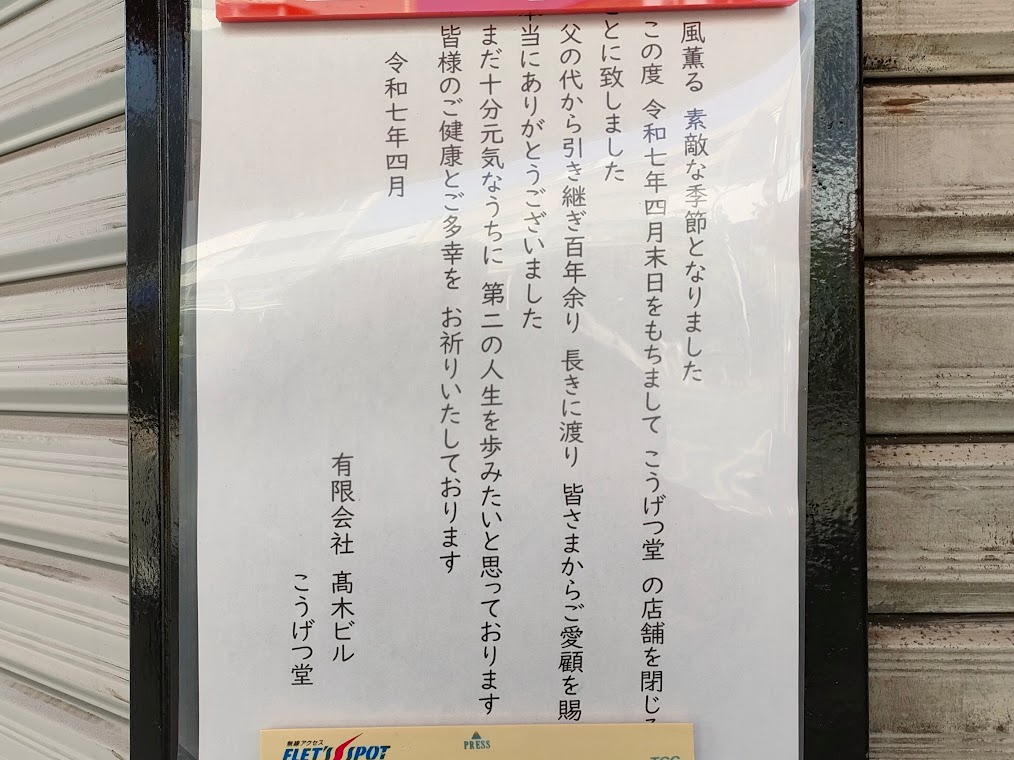 風薫る 素敵な季節となりました
この度 令和七年四月末日をもちまして こうげつ堂 の店舗を閉じる
ことに致しました
父の代から引き継ぎ百年余り 長きに渡り 皆さまからご愛顧を賜
本当にありがとうございました
まだ十分元気なうちに 第二の人生を歩みたいと思っております
皆様のご健康とご多幸を お祈りいたしております
令和七年四月
有限会社 髙木ビル
こうげつ堂
無線アクセス
FLET'S SPOT
PRESS